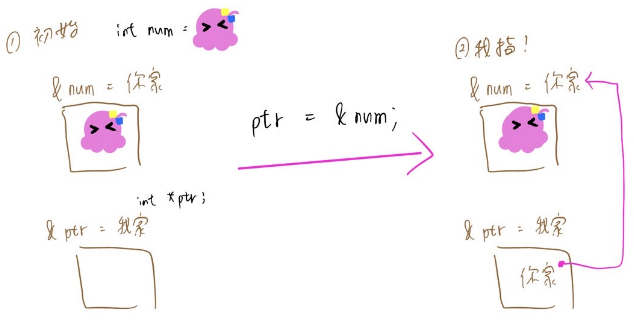 ① 初始
int num =
& num = 你家
int *ptr;
& ptr = 我家
ptr = & num;
② 我指!
& num = 你家
& ptr = 我家
你家